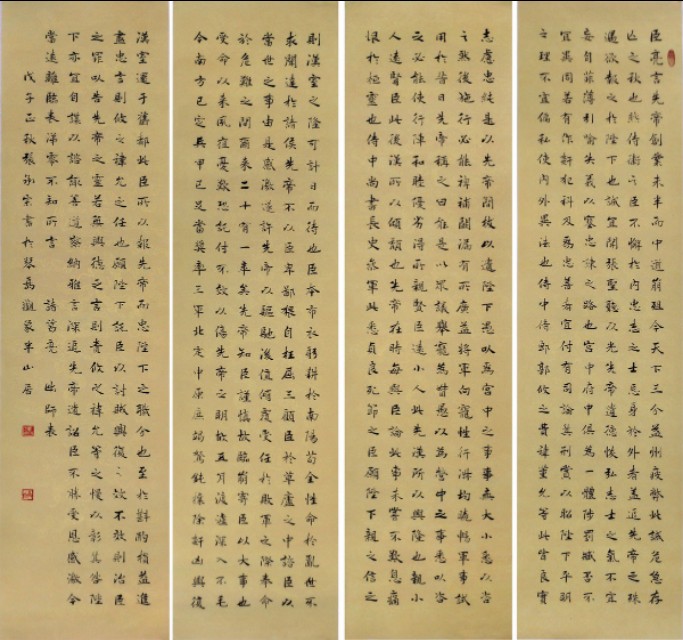 臣亮言先帝創業未半而中道崩殂今天下三分益州疲弊此誠危急存
亡之秋也然侍衛之臣不懈於內忠志之士忘身於外者蓋追先帝之殊
遇欲報之於陛下也誠宜開張聖聽以光先帝遺德恢弘志士之氣不宜
妄自菲薄引喻失義以塞忠諫之路也宮中府中俱為一體陟罰臧否不
宜異同若有作奸犯科及為忠善者宜付有司論其刑賞以昭陛下平明
之理不宜偏私使內外異法也侍中侍郎郭攸之費禕董允等此皆良實
志慮忠純是以先帝簡拔以遺陛下愚以為宮中之事事無大小悉以咨
之然後施行必能裨補闕漏有所廣益將軍向寵性行淑均曉暢軍事試
用於昔日先帝稱之曰能是以眾議舉寵為督愚以為營中之事悉以咨
之必能使行陣和睦優劣得所親賢臣遠小人此先漢所以興隆也親小
人遠賢臣此後漢所以傾頹也先帝在時每與臣論此事未嘗不歎息痛
恨於桓靈也侍中尚書長史參軍此悉貞良死節之臣願陛下親之信之
則漢室之隆可計日而待也臣本布衣躬耕於南陽苟全性命於亂世不
求聞達於諸侯先帝不以臣卑鄙猥自枉屈三顧臣於草廬之中諮臣以
當世之事由是感激遂許先帝以驅馳後值傾覆受任於敗軍之際奉命
於危難之間爾來二十有一年矣先帝知臣謹慎故臨崩寄臣以大事也
受命以來夙夜憂歎恐託付不效以傷先帝之明故五月渡瀘深入不毛
今南方已定兵甲已足當獎率三軍北定中原庶竭駑鈍攘除奸凶興復
漢室還于舊都此臣所以報先帝而忠陛下之職分也至於斟酌損益進
盡忠言則攸之禕允之任也願陛下託臣以討賊興復之效不效則治臣
之罪以告先帝之靈若無興德之言則責攸之禕允等之慢以彰其咎陛
下亦宜自謀以諮諏善道察納雅言深追先帝遺詔臣不勝受恩感激今
當遠離臨表涕零不知所言 諸葛亮 出師表
戊子正秋張永宏書於琴 半山居